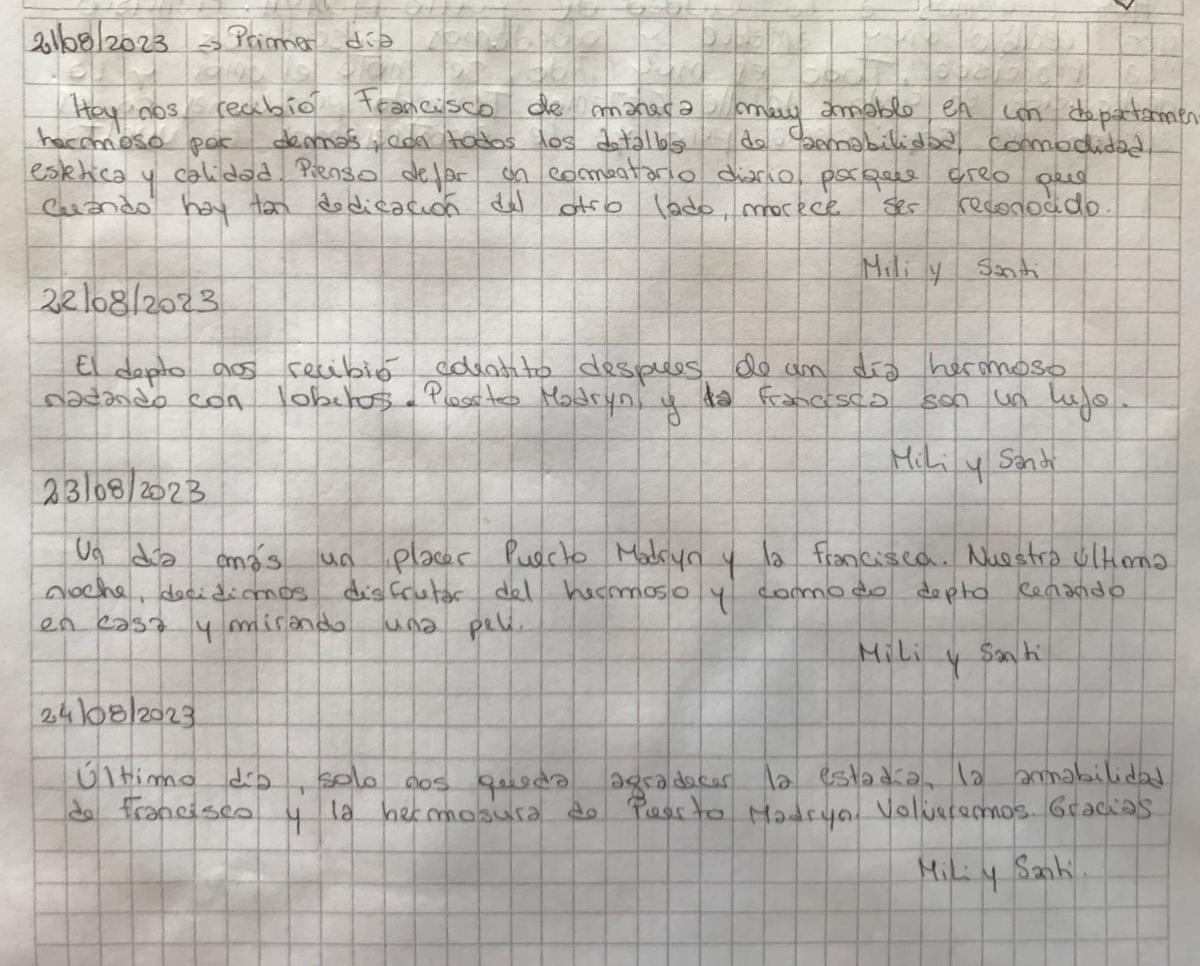 21/08/2023 → Primer día
Hoy nos recibió Francisco de manera muy amable, en un departamen
hermoso por demás, con todos los detalles de amabilidad, commodidad,
estética y calidad. Pienso dejar un comentario diario, porque creo que
cuando hay tan dedicación del otro lado, merece ser reconocido.
Mili y Santi
22/08/2023
El depto nos recibió calentito despues de un día hermoso
nadando con lobitos. Puerto Madryn, y la Francisca son un lujo.
Mili y Santi
23/08/2023
Un día más un placer Puerto Madryn y la Francisca. Nuestra última
noche, decidimos disfrutar del hermoso y commodo depto cenando
en casa y mirando una peli.
Mili y Santi
24/08/2023
Último día, solo nos queda agradecer la estadía, la amabilidad
de Francisco y la hermosura de Puerto Madryn. Volveremos. Gracias
Mili y Santi.